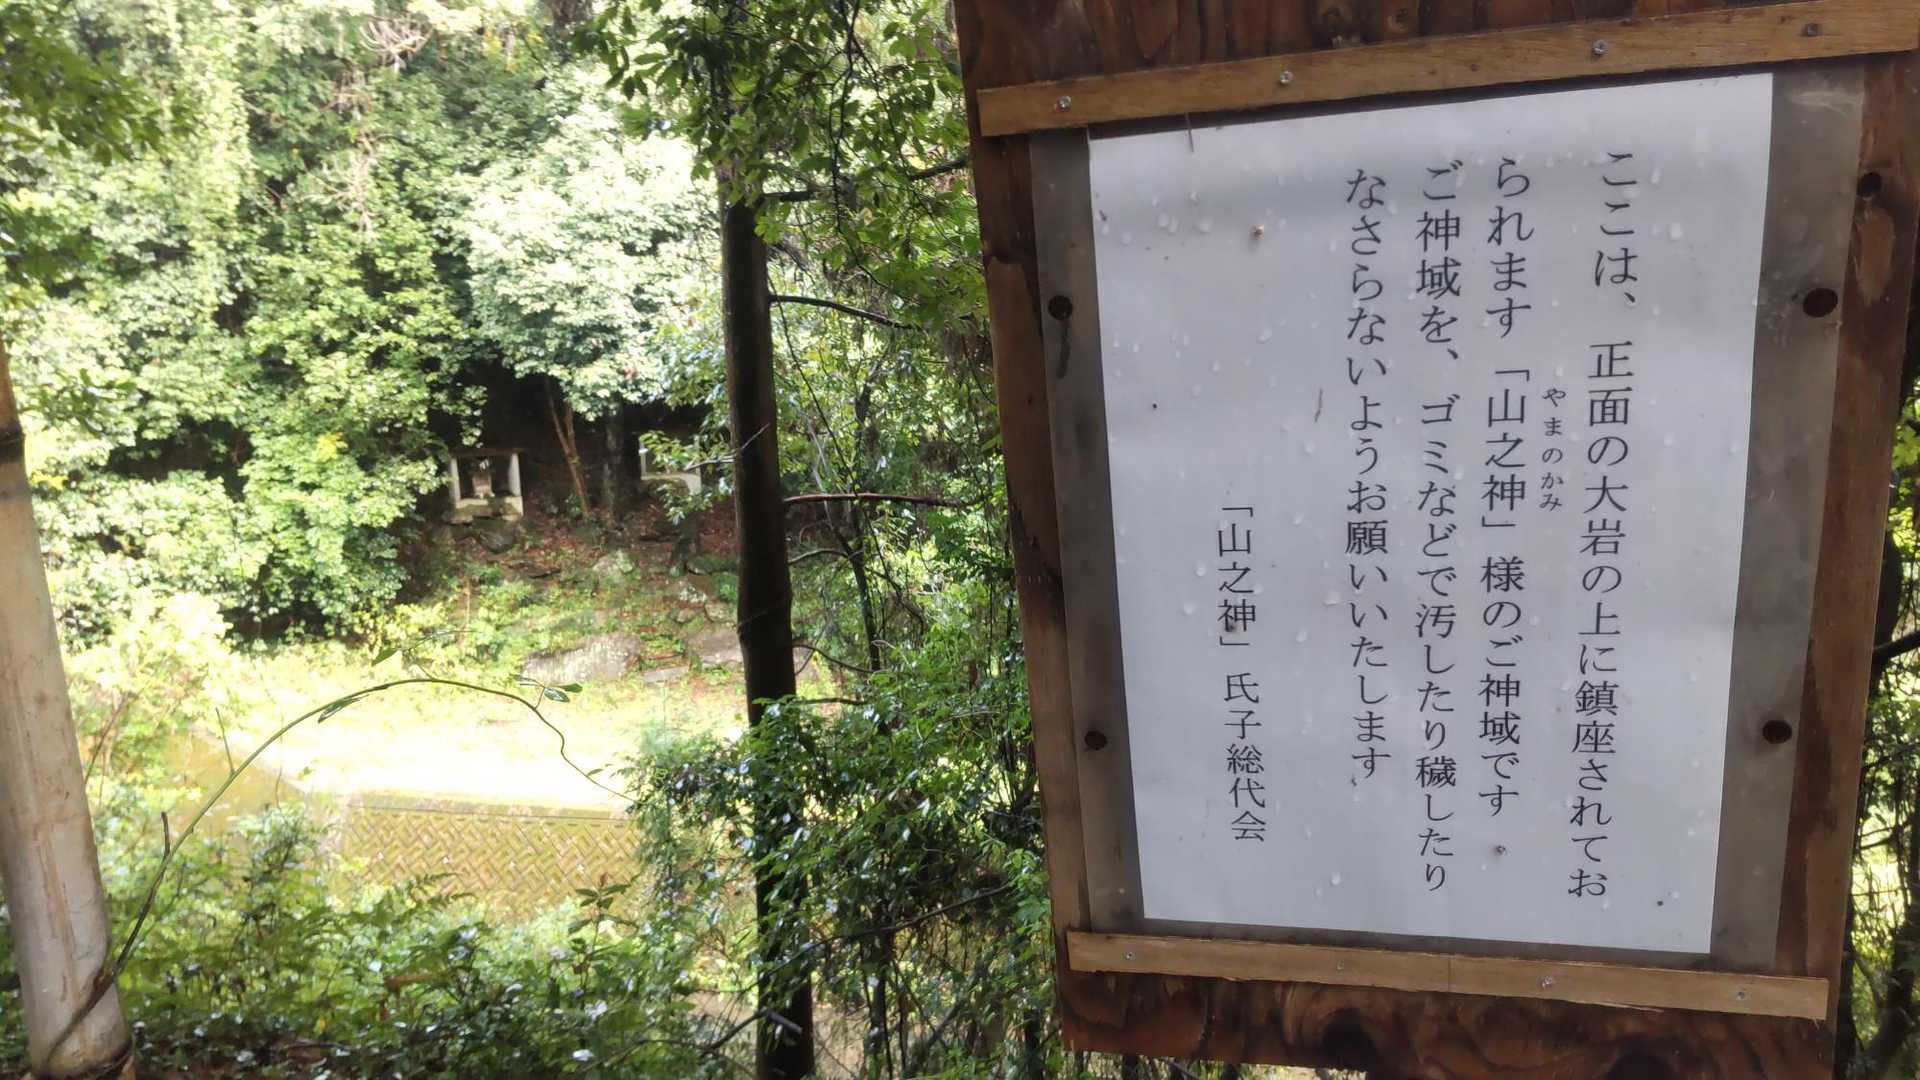 ここは、正面の大岩の上に鎮座されてお
られます「山之神」様のご神域です
やまのかみ
ご神域を、ゴミなどで汚したり穢したり
なさらないようお願いいたします
「山之神」氏子総代会